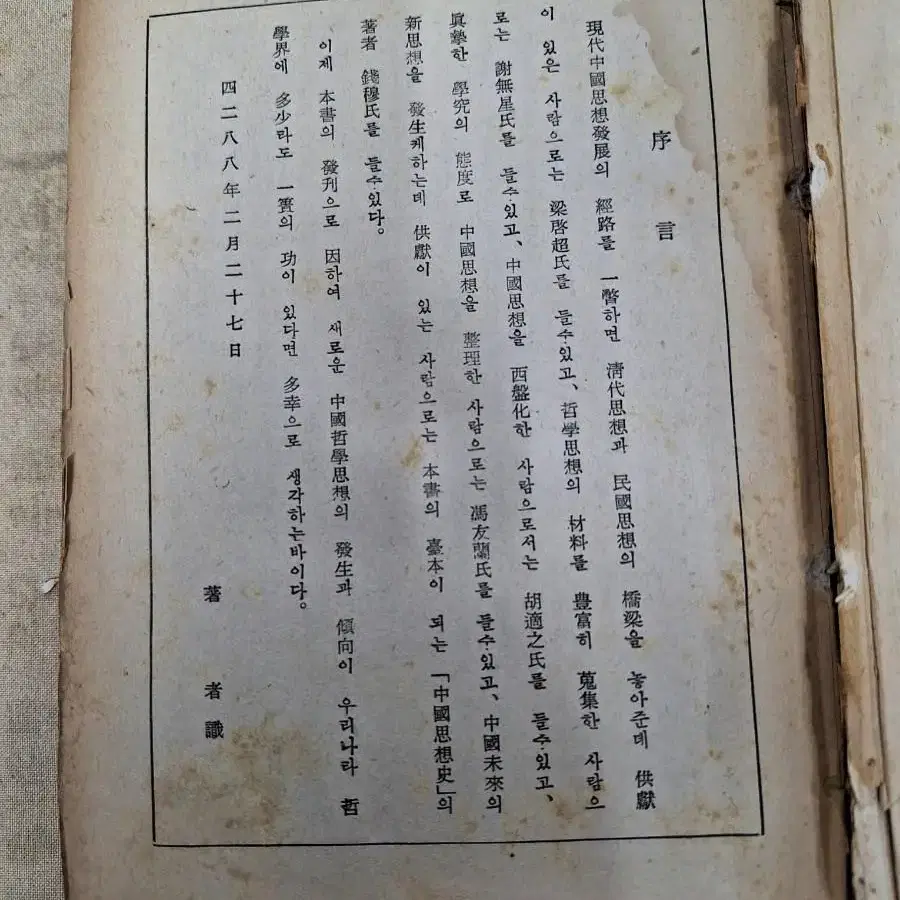 序言
現代中國思想發展의 經路를 一瞥하면 淸代思想과 民國思想의 橋梁을 놓아준데 供獻
이 있은 사람으로는 梁啓超氏를 들수있고、哲學思想의 材料를 豊富히 蒐集한 사람으
로는 謝無星氏를 들수있고、中國思想을 西盤化한 사람으로서는 胡適之氏를 들수있고、
眞摯한 學究의 態度로 中國思想을 整理한 사람으로는 馮友蘭氏를 들수있고、中國未來의
新思想을 發生케하는데 供獻이 있는 사람으로는 本書의 臺本이 되는「中國思想史」의
著者 錢穆氏를 들수있다。
이제 本書의 發刊으로 因하여 새로운 中國哲學思想의 發生과 傾向이 우리나라 哲
學界에 多少라도 一賚의 功이 있다면 多幸으로 생각하는바이다。
四二八八年二月二十七日
著者識